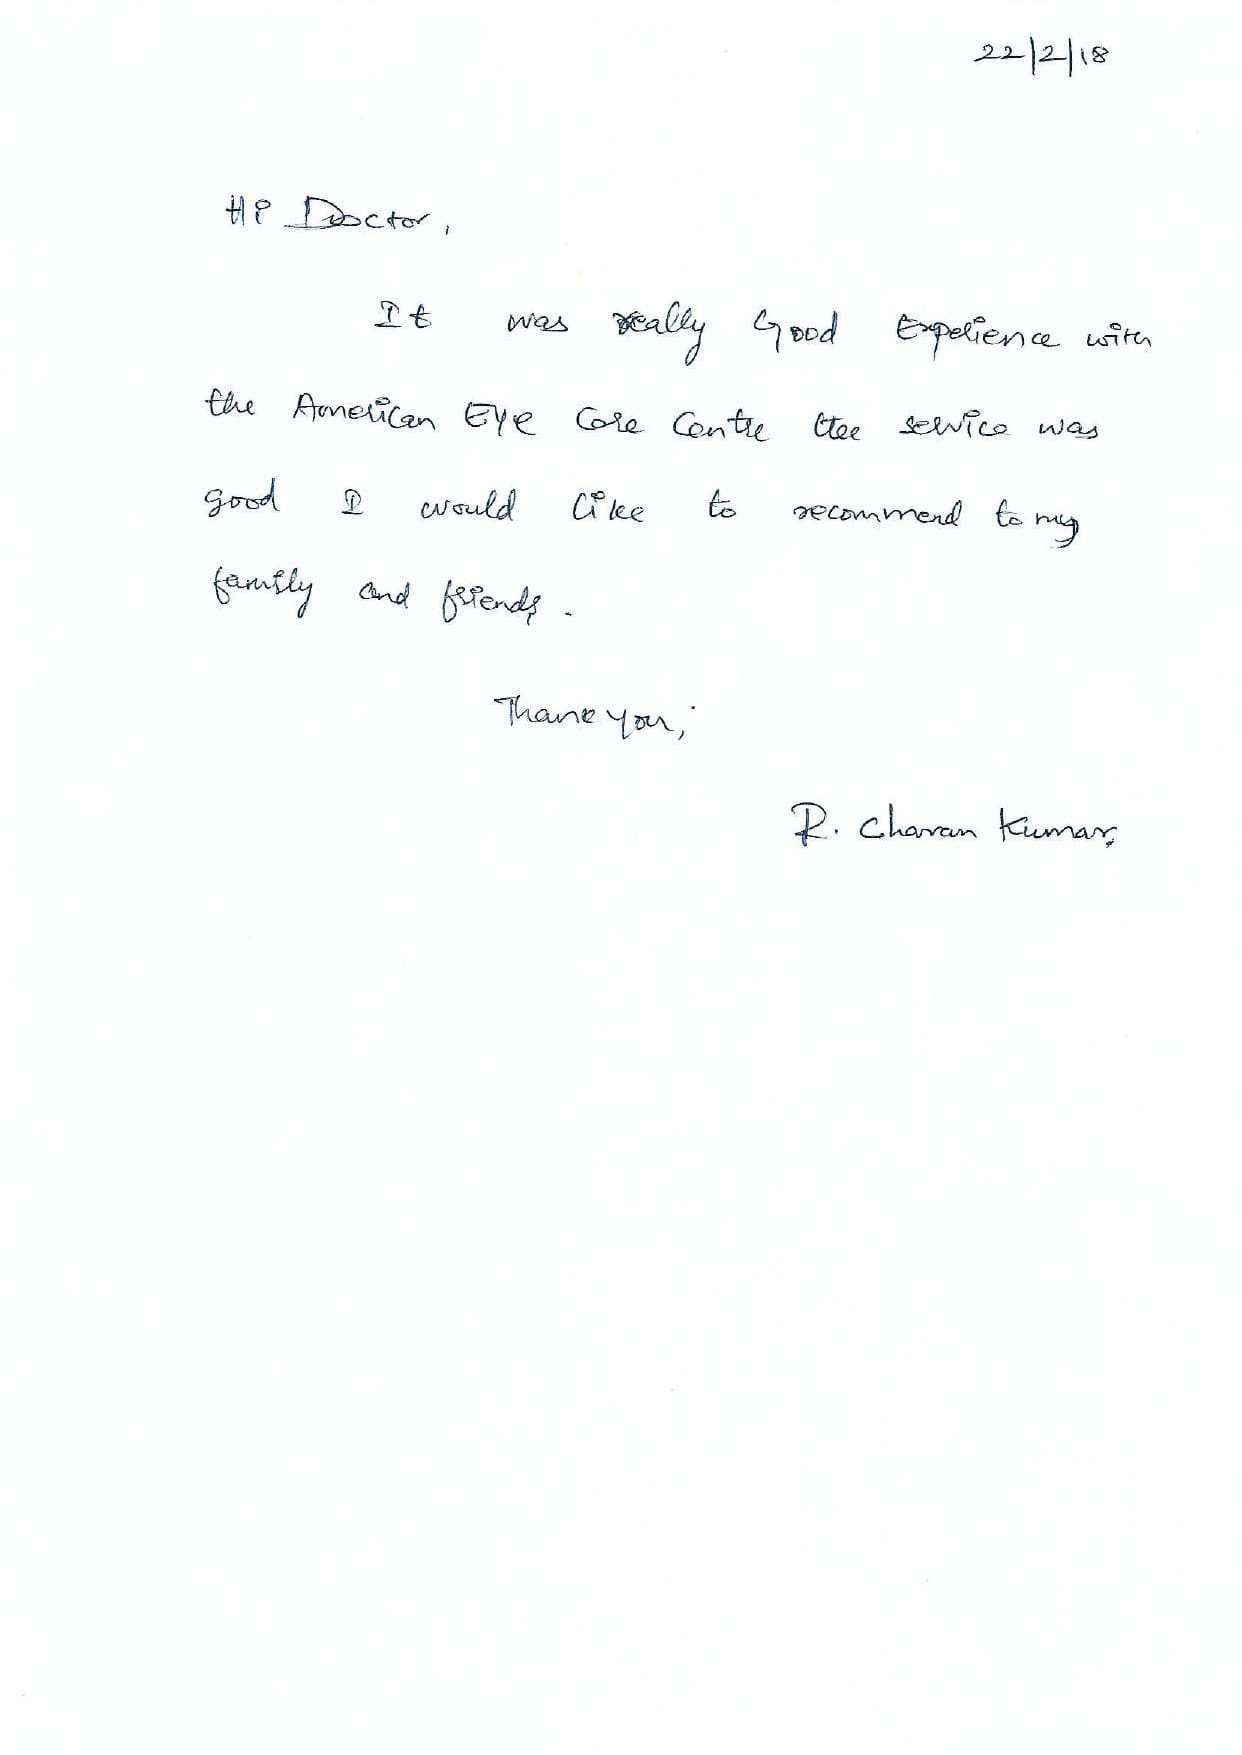 22/2/18
Hi Doctor,
It was really Good Experience with
the American Eye Care Centre the service was
good I would like to recommend to my
family and friends.
Thank you,
R. Charan Kumar,